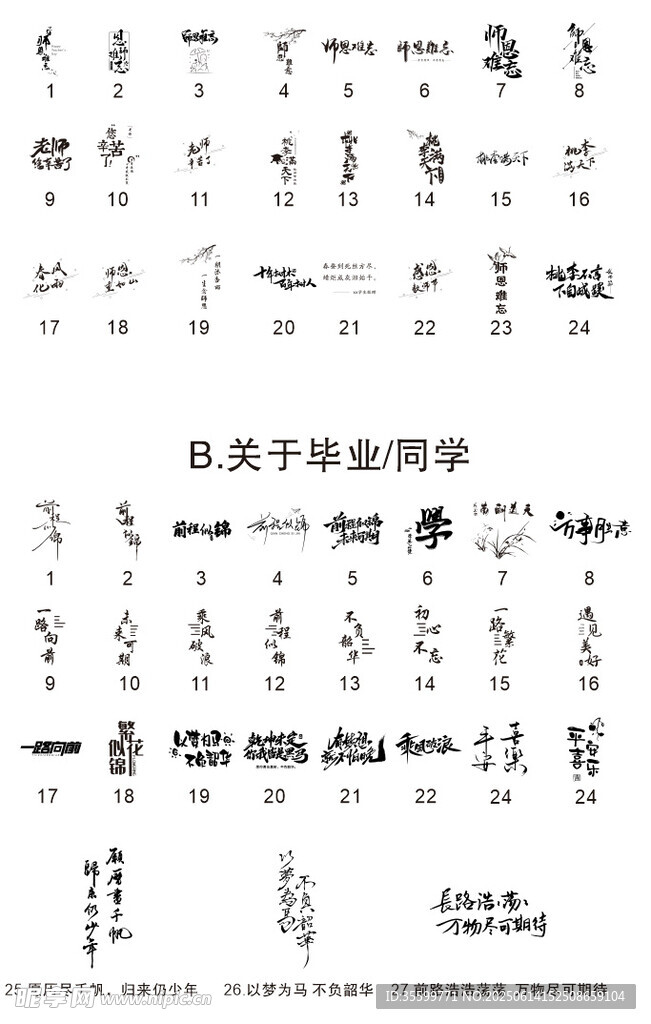 师恩难忘
恩师难忘
师恩难忘
师恩难忘
师恩难忘
师恩难忘
师恩难忘
师恩难忘
1 2 3 4 5 6 7 8
老师您辛苦了
您辛苦了!
老师辛苦了
桃李满天下
桃李满天下
桃李满天下
桃李满天下
桃李满天下
9 10 11 12 13 14 15 16
春风化雨
师恩如山
一朝沐杏雨
一生念师恩
十年树木
百年树人
春蚕到死丝方尽,
感恩教师节
师恩难忘
桃李不言
下自成蹊
17 18 19 20 21 22 23 24
B.关于毕业/同学
前程似锦
前程似锦
前程似锦
前程似锦
前程似锦
未来可期
學
万事胜意
1 2 3 4 5 6 7 8
一路向前
未来可期
乘风破浪
前程似锦
不负韶华
初心不忘
一路繁花
遇见美好
9 10 11 12 13 14 15 16
一路向前
繁花似锦
以梦为马
不负韶华
乾坤未定
你我皆是黑马
有梦想
就不怕晚
乘风破浪
平安喜樂
平安喜乐
17 18 19 20 21 22 24 24
願歷盡千帆
歸來仍少年
以梦为马
不负韶华
長路浩浩荡荡
万物尽可期待
25.愿历尽千帆，归来仍少年 26.以梦为马 不负韶华 27.前路浩浩荡荡 万物尽可期待
ID:35599771 NO:20250614152508659104